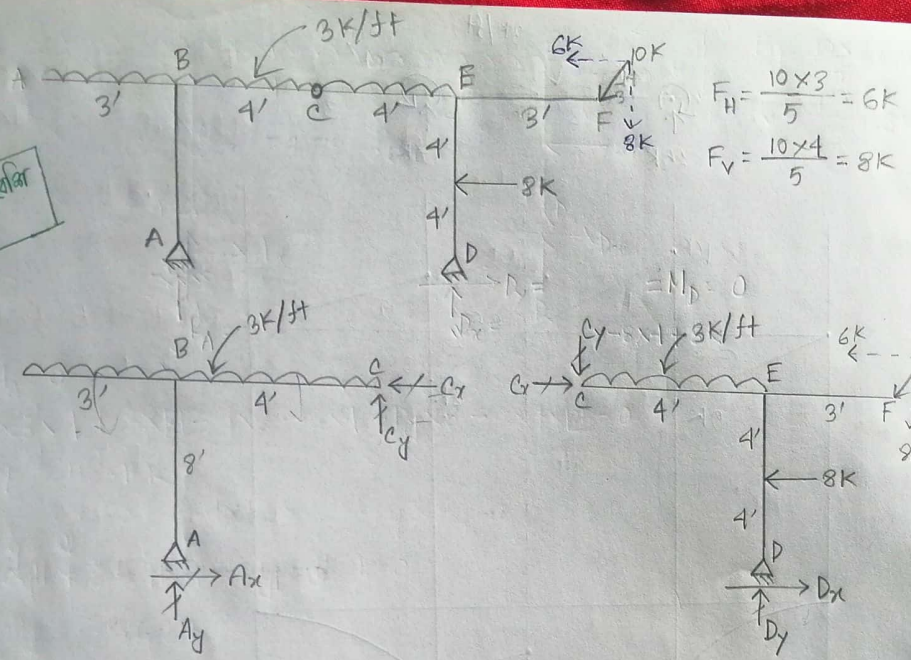 3K/ft
6K
10K
A
B
E
3'
4'
C
4'
3'
F
8K
F_H = 10×3/5 = 6K
F_V = 10×4/5 = 8K
4'
8K
4'
A
D
= M_D = 0
3K/ft
B
C
Cx
3'
4'
Cy
8'
A
Ax
Ay
Cy
3K/ft
6K
Cx
C
E
4'
3'
F
8
4'
8K
4'
D
Dx
Dy